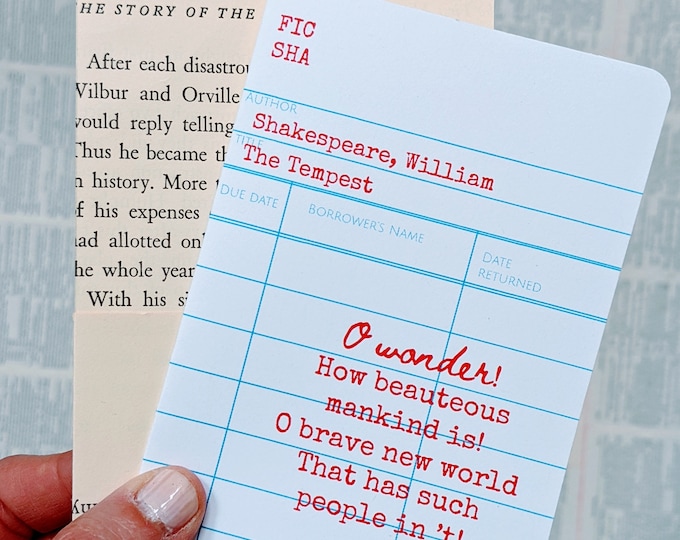 HE STORY OF THE
After each disastrou
Wilbur and Orville
would reply telling
Thus he became th
n history. More
f his expenses
had allotted onl
he whole year
With his si
FIC
SHA
AUTHOR
Shakespeare, William
TITLE
The Tempest
DUE DATE
BORROWER'S NAME
DATE
RETURNED
O wonder!
How beauteous
mankind is!
O brave new world
That has such
people in 't!